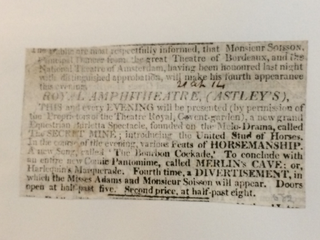 are most respectfully informed, that Monsieur Soisson,
Principal Dancer from the great Theatre of Bordeaux, and the
National Theatre of Amsterdam, having been honoured last night
with distinguished approbation, will make his fourth appearance
this evening.
ROYAL AMPHITHEATRE, (ASTLEY'S),
THIS and every EVENING will be presented (by permission of
the Proprietors of the Theatre Royal, Covent-garden), a new grand
Equestrian Spectacle, founded on the Melo-Drama, called
The SECRET MINE; introducing the United Stud of Horses.
In the course of the evening, various Feats of HORSEMANSHIP.
A new Song, called 'The Bourbon Cockade.' To conclude with
an entire new Comic Pantomime, called MERLIN'S CAVE; or,
Harlequin's Masquerade. Fourth time, a DIVERTISEMENT, in
which the Misses Adams and Monsieur Soisson will appear. Doors
open at half-past five. Second price, at half-past eight.